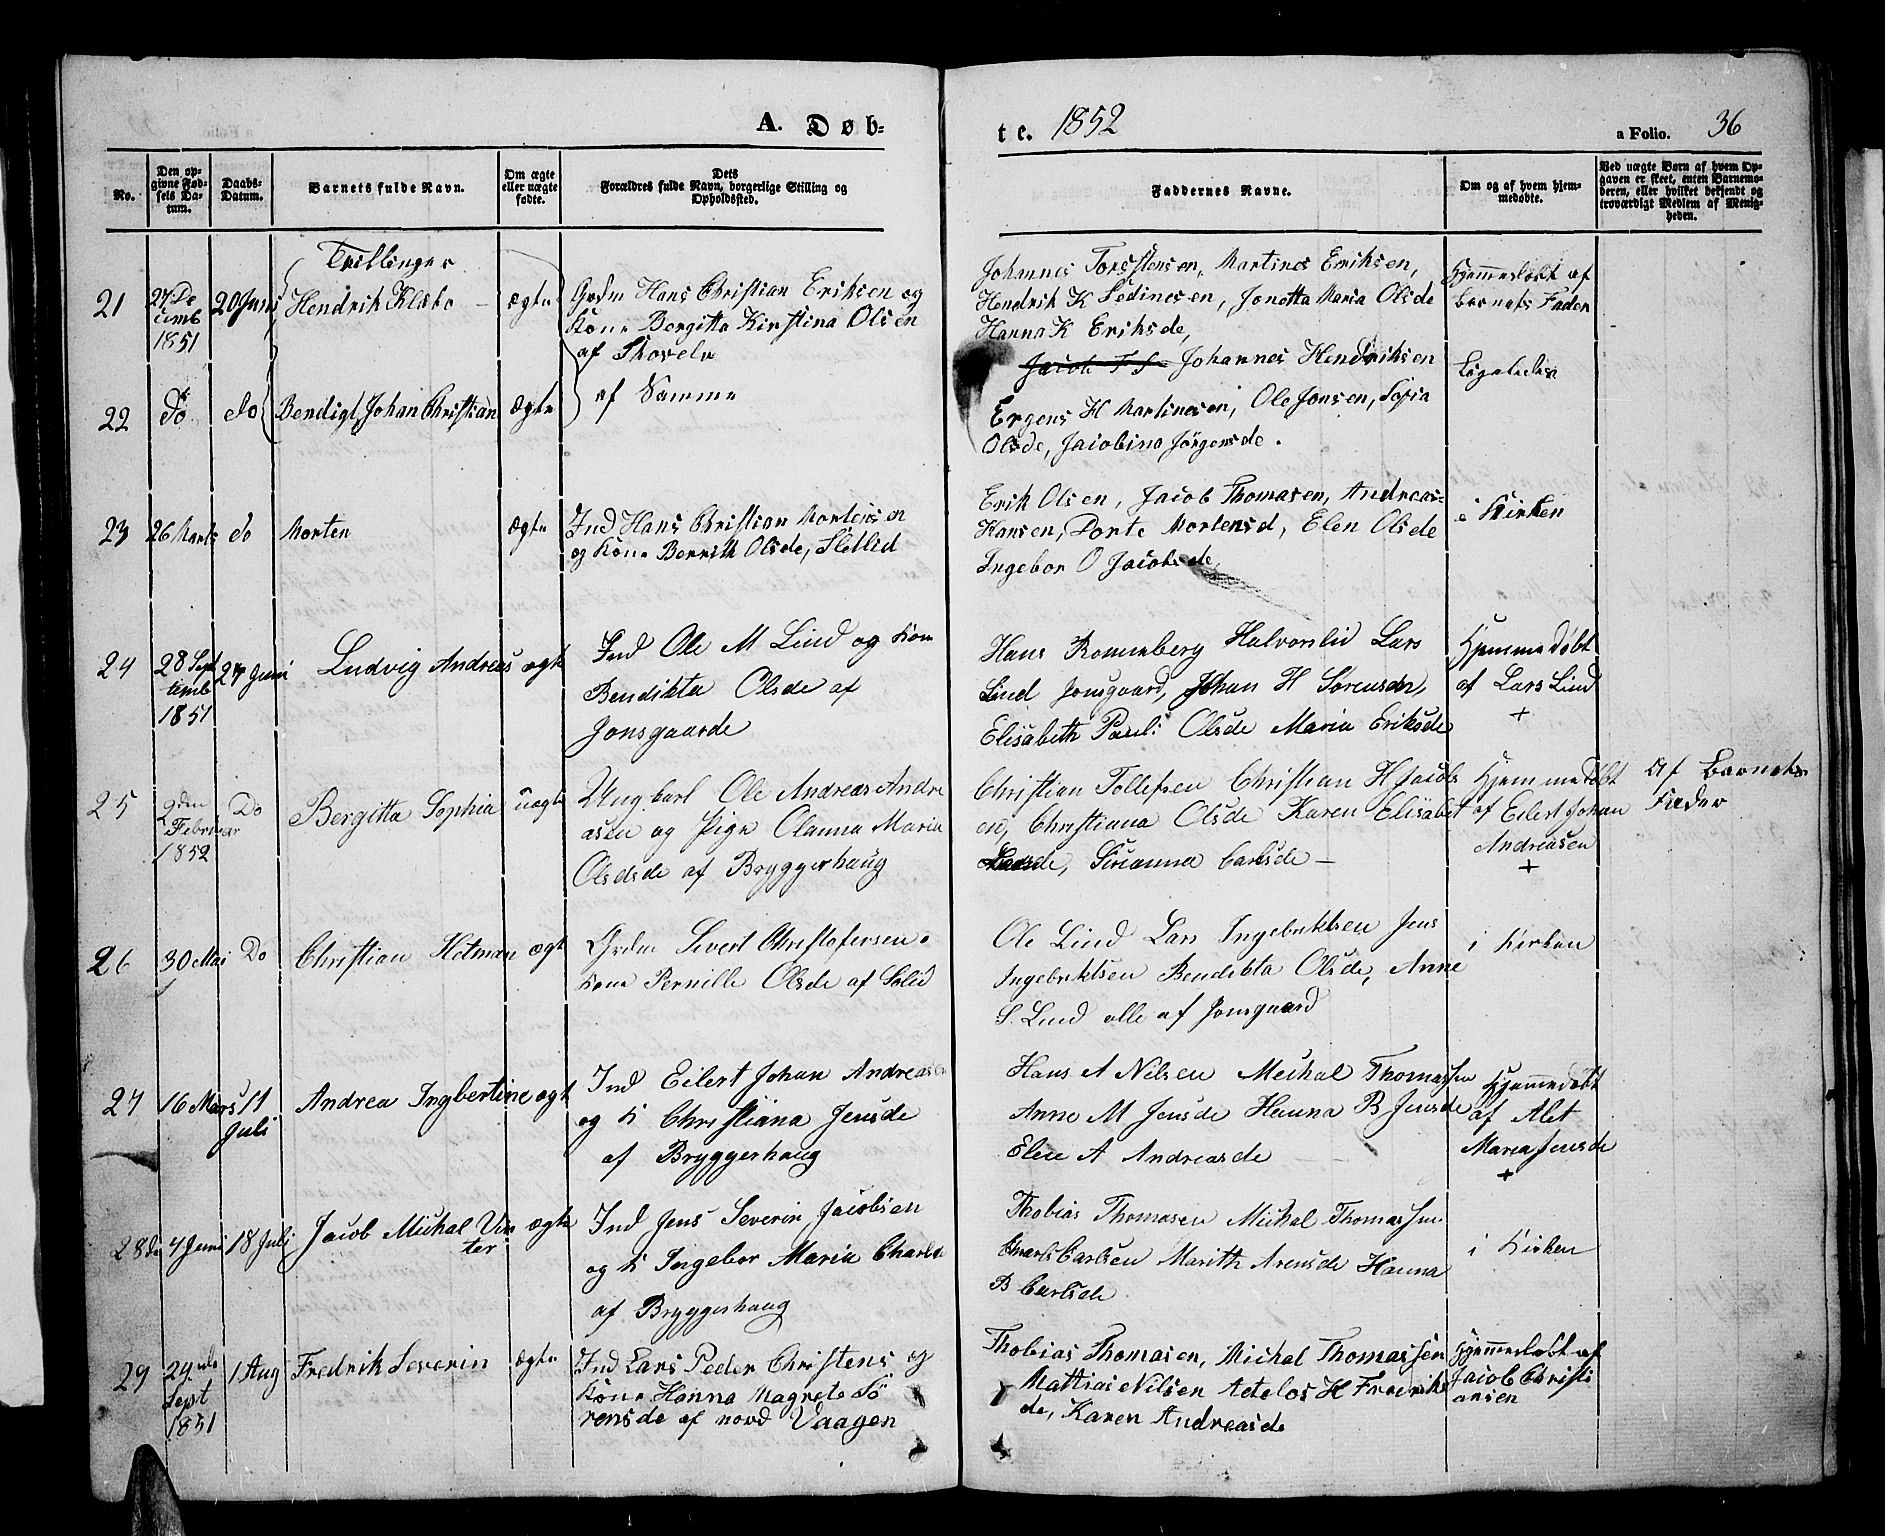 A. Døb-
te. 1852
a Folio. 36
No.
Den opgivne Fødsels Datum.
Daabs-Datum.
Barnets fulde Navn.
Om ægte eller uægte fødte.
Dets Forældres fulde Navn, borgerlige Stilling og Opholdssted.
Faddernes Navne.
Om og af hvem hjemmedøbte.
Ved uægte Børn af hvem Opgaven er skeet, enten Barnemoderen, eller hvilket bekjendt og troværdigt Medlem af Menigheden.
Trillinger
21
27 De
cemb
1851
20 Juni
Hendrik Klæbo
ægte
Grdm Hans Christian Eriksen og
Kone Bergitta Kirstina Olsen
af Skovelv
Johannes Torsstensen, Martines Eriksen,
Hendrik K Sedinesen, Jonetta Maria Olsde
Hanna K Eriksde,
Hjemmedøbt af
barnets Fader
22
do
do
Bendigt Johan Christian
Ægte
af Samme
Johannes Hendriksen
Ergens H Martinesen, Ole Jonsen, Sofia
Olsde, Jacobina Jörgensde.
Ligeledes
23
26 Marts
do
Morten
ægte
Ind Hans Christian Mortensen
og Kone Berrith Olsde, Sletlid
Erik Olsen, Jacob Thomasen, Andreas
Hansen, Dorte Mortensd, Elen Olsde
Ingebor O Jacobsde
i Kirken
24
28 Sept
temb
1851
27 Juni
Ludvig Andreas
ægte
Ind Ole M Lind og Kone
Bendikta Olsde af
Jonsgaarde
Hans Romenberg Halvorslid Lars
Lind Jonsgaard, Johan H Sørensen,
Elisabeth Paul: Olsde Maria Eriksde
Hjemmedøbt
af Lars Lind
+
25
2den
Februar
1852
Do
Bergitta Sophia
uægte
Ungkarl Ole Andreas Andre
asen og Pige Olanna Maria
Olsdsde af Bryggerhaug
Christian Tollefsen Christian H Jacobs
en, Christiana Olsde Karen Elisabet
Larsde, Sirianna Carlsde –
Hjemmedøbt
af Eilert Johan
Andreasen
+
Af Barnets
Fader
26
30 Mai
Do
Christian Hetman
ægte
Grdm Sivert Christofersen o
Kone Pernille Olsde af Solid
Ole Lind Lars Ingebrktsen Jens
Ingebrktsen Bendikta Olsde, Anne
S. Lind alle af Jonsgaard
i Kirken
27
16 Mars
11
Juli
Andrea Ingbertine
ægt
Ind Eilert Johan Andreasen
og K Christiana Jensde
af Bryggerhaug
Hans A Nilsen Michal Thomassen
Anne M Jensde Hanna B Jensde
Elen A Andreasde
Hjemmedøbt
af Alet
Maria Jensde
+
28de
4 Juni
18 Juli
Jacob Michal Vin
ter
ægte
Ind Jens Severin Jacobsen
og K Ingebor Maria Charlsd
af Bryggerhaug
Thobias Thomasen Michal Thomassen
Charls Carlsen Marith Arensde Hanna
B Carlsde
i Kirken
29
29de
Sept
1851
1 Aug
Fredrik Severin
ægte
Ind Lars Peder Christens og
Kone Hanna Magrete Sö
rensde af nord Vaagen
Thobias Thomasen, Michal Thomassen
Mattias Nilsen Adelos H Fredriks
de, Karen Andreasde
Hjemmedøbt af
Jacob Christi
ansen